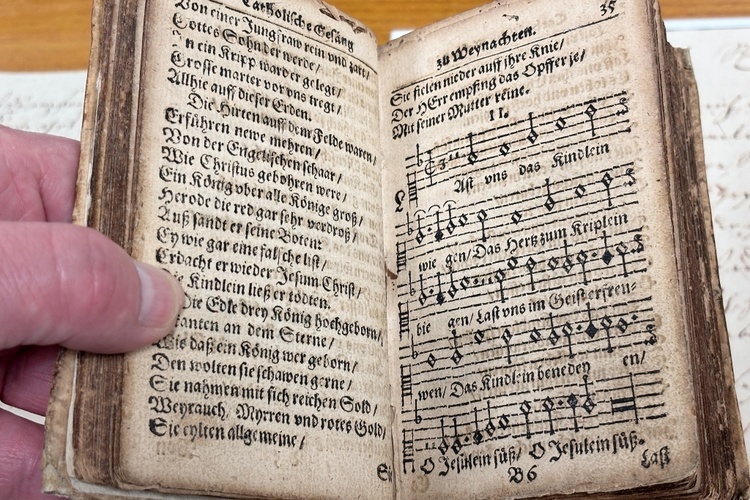 Catholische Gesäng
Von einer Jungfraw rein und zart/
Gottes Sohn der werde/
In ein Kripp ward er gelegt/
Grosse marter vor uns tregt/
Allhie auff dieser Erden.
Die Hirten auff dem Felde waren/
Erführen newe mehren/
Von der Engelischen schaar/
Wie Christus gebohren were/
Ein König ober alle Könige groß/
Herode die red gar sehr verdroß/
Auß sandt er seine Boten:
Ey wie gar eine falsche list/
Erdacht er wieder Jesum Christ/
Kindlein ließ er tödten.
Die Edle drey König hochgeborn/
kanten an dem Sterne/
Wis daß ein König wer geborn/
Den wolten sie schawen gerne/
Sie nahmen mit sich reichen Sold/
Weyrauch/ Myrren und rotes Gold/
Sie eylten allgemeine/
zu Weynachten. 35
Sie fielen nieder auff ihre Knie/
Der HErr empfing das Opffer je/
Mit seiner Mutter reine.
II.
Last vns das Kindlein
wie gen/ Das Hertz zum Kriplein
bie gen/ Last vns im Geist erfreu-
wen/ Das Kindlein benedey en/
O Jesulein süß/ O Jesulein süß.
B6 Last